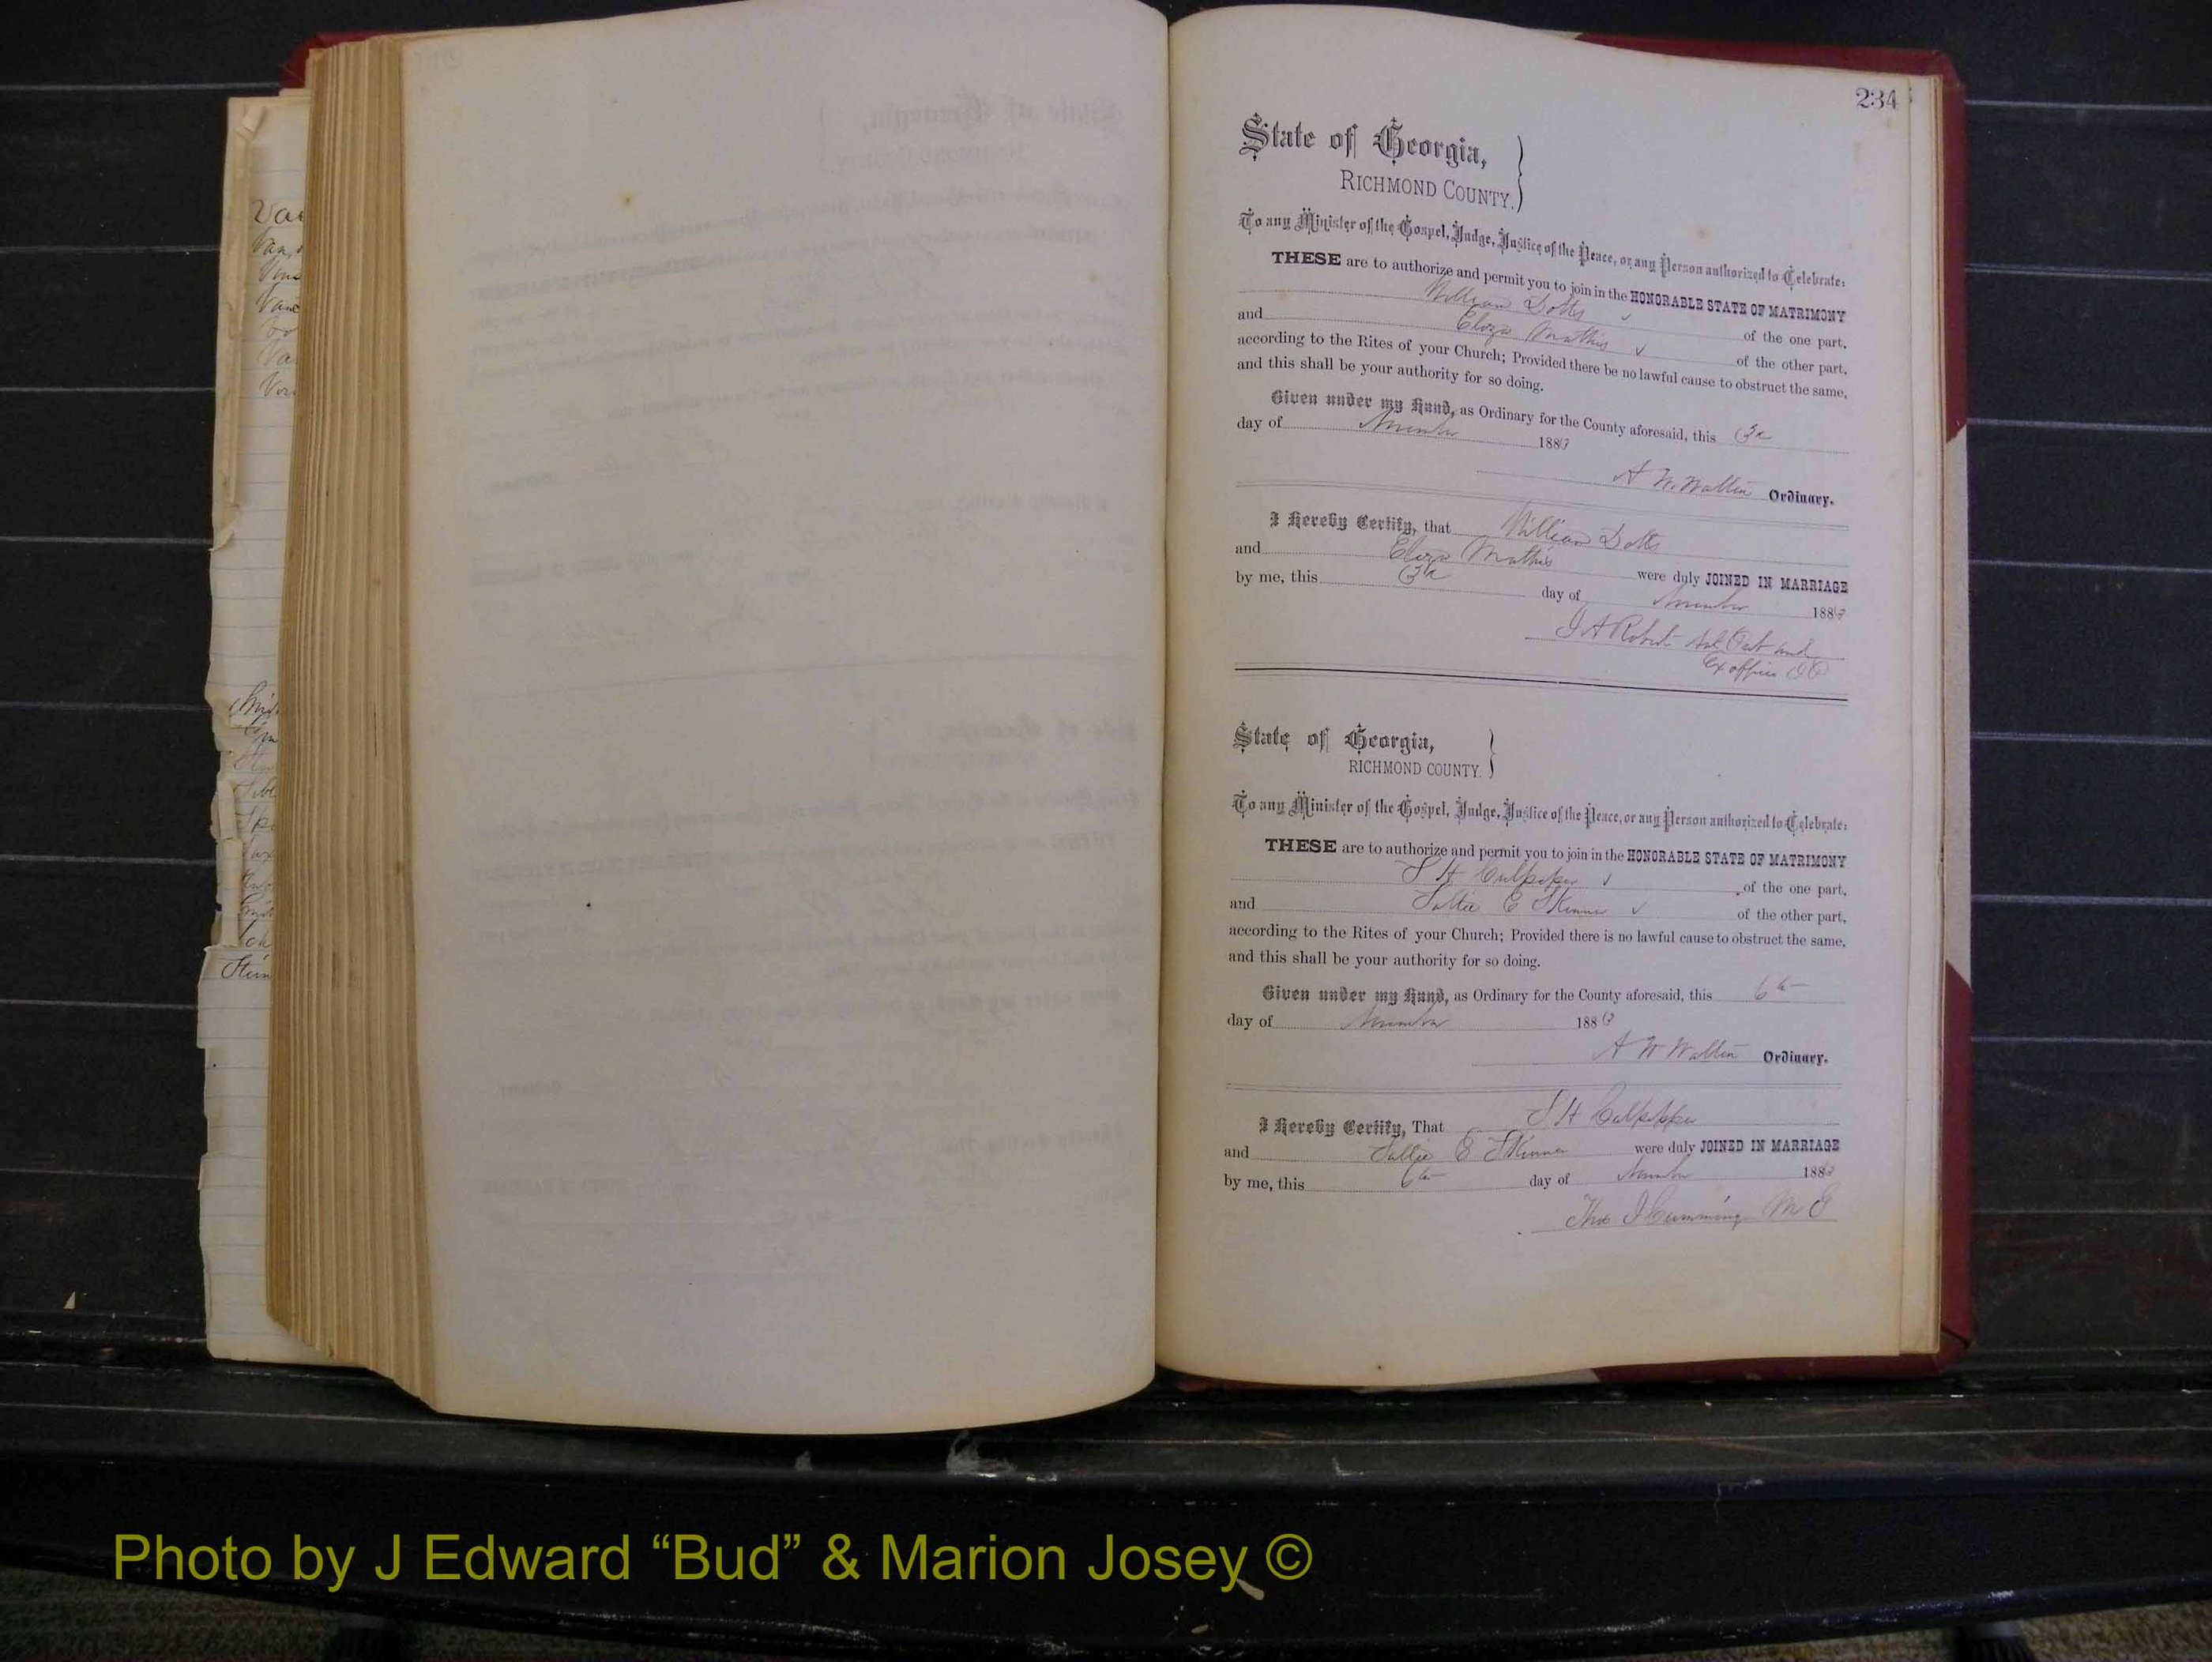 234
State of Georgia,
RICHMOND COUNTY.
To any Minister of the Gospel, Judge, Justice of the Peace, or any Person authorized to Celebrate:
THESE are to authorize and permit you to join in the HONORABLE STATE OF MATRIMONY
William Dotts of the one part,
and Eliza Mathis of the other part,
according to the Rites of your Church; Provided there be no lawful cause to obstruct the same,
and this shall be your authority for so doing.
Given under my Hand, as Ordinary for the County aforesaid, this 3d
day of November 188
A W. Walton Ordinary.
I Hereby Certify, that William Dotts
and Eliza Mathis were duly JOINED IN MARRIAGE
by me, this 3d day of November 188
J A Robert and
Ex officio
State of Georgia,
RICHMOND COUNTY.
To any Minister of the Gospel, Judge, Justice of the Peace, or any Person authorized to Celebrate:
THESE are to authorize and permit you to join in the HONORABLE STATE OF MATRIMONY
S H Culpepper of the one part,
and Sallie E Skinner of the other part,
according to the Rites of your Church; Provided there is no lawful cause to obstruct the same,
and this shall be your authority for so doing.
Given under my Hand, as Ordinary for the County aforesaid, this 6th
day of November 188
A W Walton Ordinary.
I Hereby Certify, That S H Culpepper
and Sallie E Skinner were duly JOINED IN MARRIAGE
by me, this 6th day of November 188
Thos J Cumming M G
Photo by J Edward “Bud” & Marion Josey ©